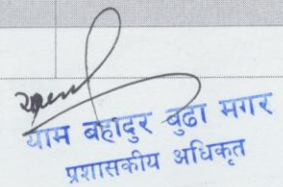 याम बहादुर बुढा मगर
प्रशासकीय अधिकृत